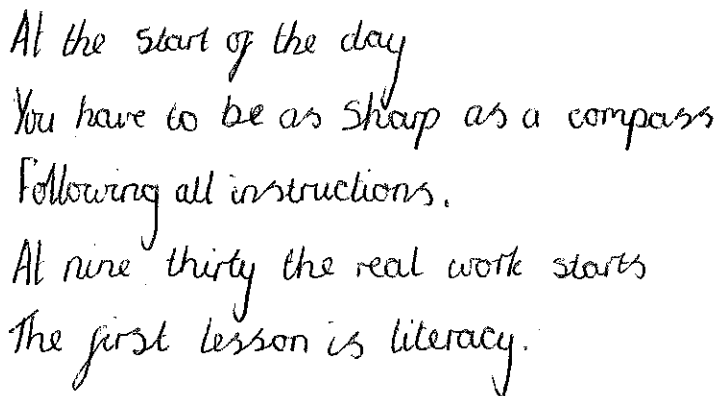 At the start of the day
You have to be as sharp as a compass
Following all instructions.
At nine thirty the real work starts
The first lesson is literacy.